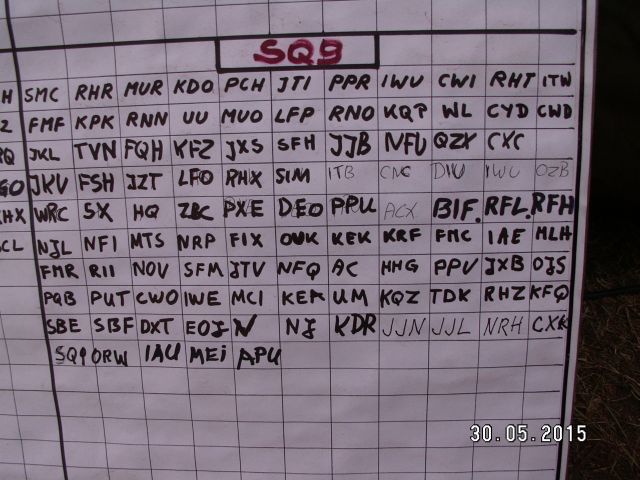 SQ9
H SMC RHR MUR KDO PCH JTI PPR IWU CWI RHT ITW
Z FMF KPK RNN UU MUO LFP RNO KQP WL CYD CWD
RQ JKL TVN FQH KFZ JXS SFH JJB NFU QZX CXC
GO JKV FSH JZT LFO RHX SIM ITB CNC DIU IWU OZB
KHX WRC SX HQ ZBC PXE DEO PPU ACX BIF. RFL. RFH
CL NJL NFI MTS NRP FIX OUK KEK KRF FMC IAE MLH
FMR RII NOV SFM JTV NFQ AC HHG PPV JXB OJS
PQB PUT CWO IWE MCI KEA UM KQZ TDK RHZ KFQ
SBE SBF DXT EOJ N NJ KDR JJN JJL NRH CXK
SQ9 ORW IAU MEi APU
30.05.2015